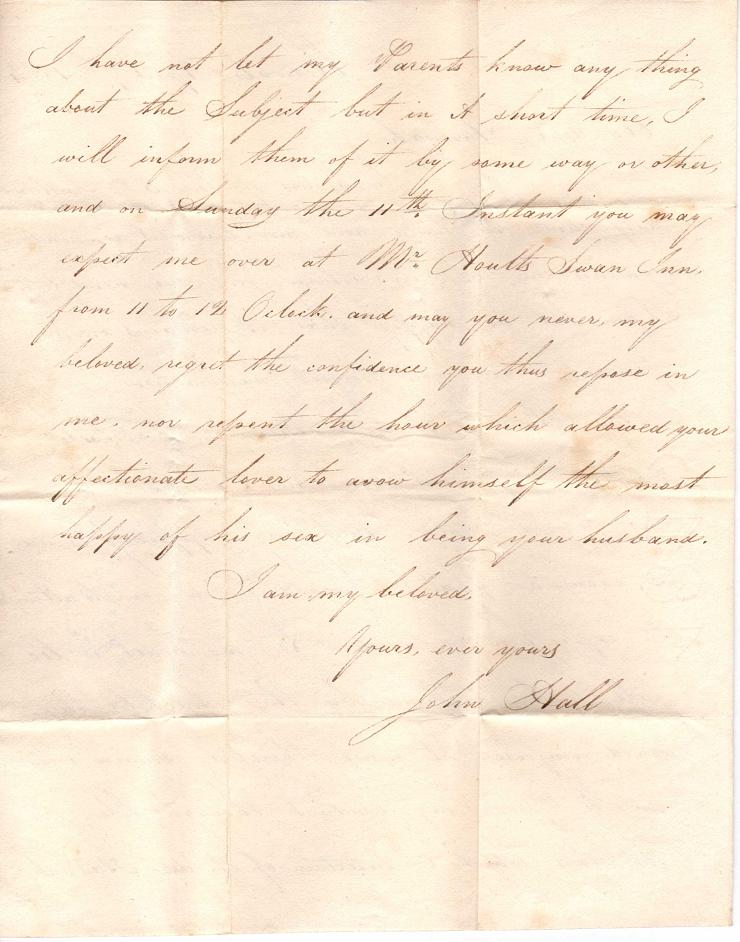 I have not let my Parents know any thing
about the Subject but in A short time, I
will inform them of it by some way or other,
and on Sunday the 11th. Instant you may
expect me over at Mr. Hoults Swan Inn.
from 11 to 12 Oclock. and may you never, my
beloved, regret the confidence you thus repose in
me. nor repent the hour which allowed your
affectionate lover to avow himself the most
happy of his sex in being your husband.
I am, my beloved,
Yours, ever yours
John Hall